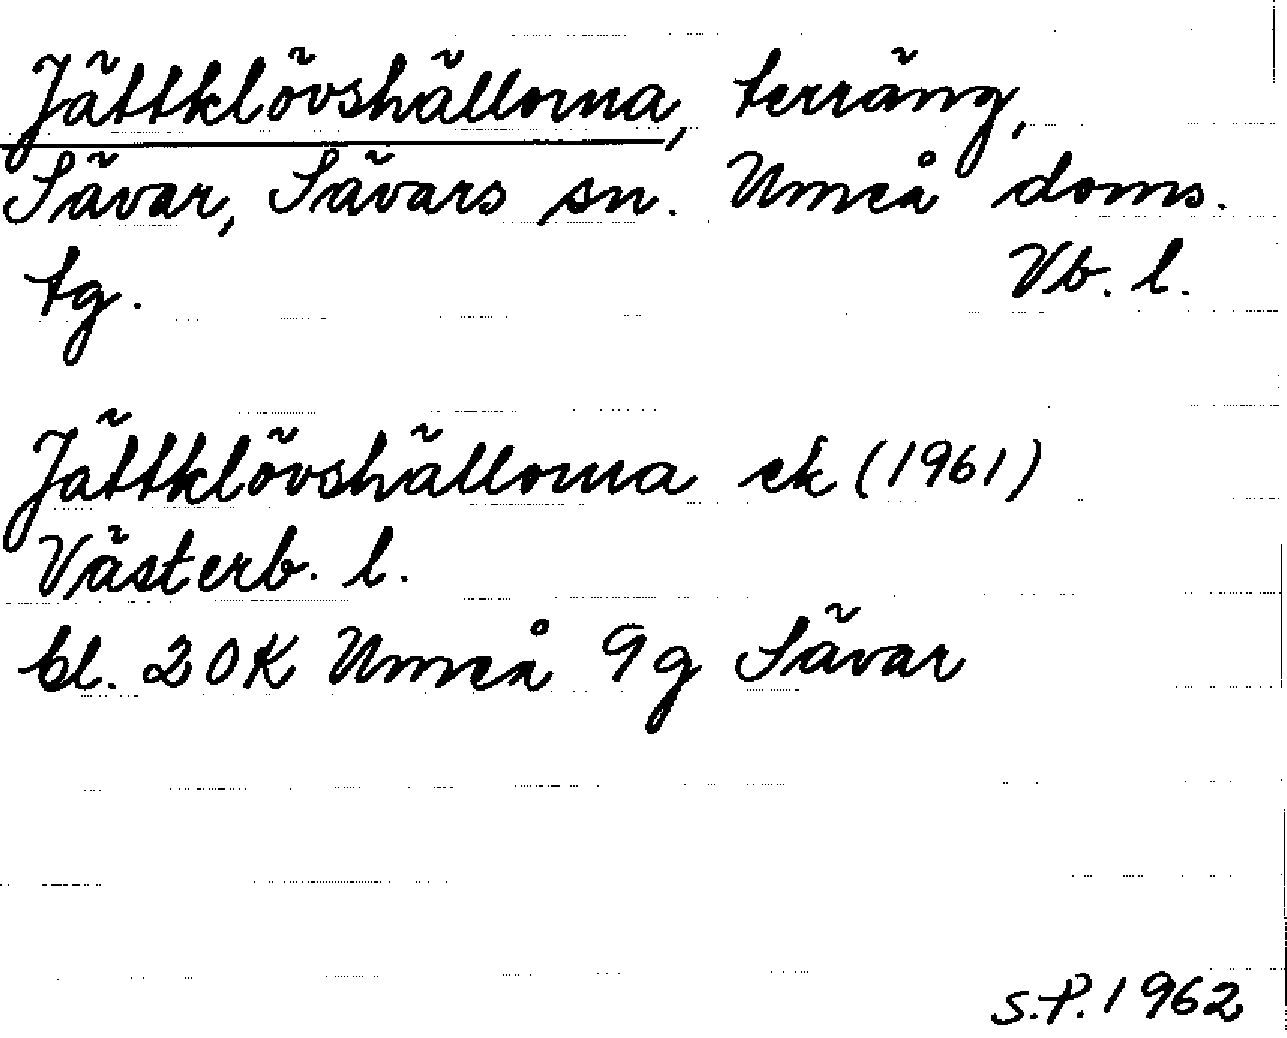 Jättklövshällorna, terräng,
Sävar, Sävars sn. Umeå doms.
tg. Vb. l.
Jättklövshällorna ek (1961)
Västerb. l.
bl. 20K Umeå 9g Sävar
S.P. 1962